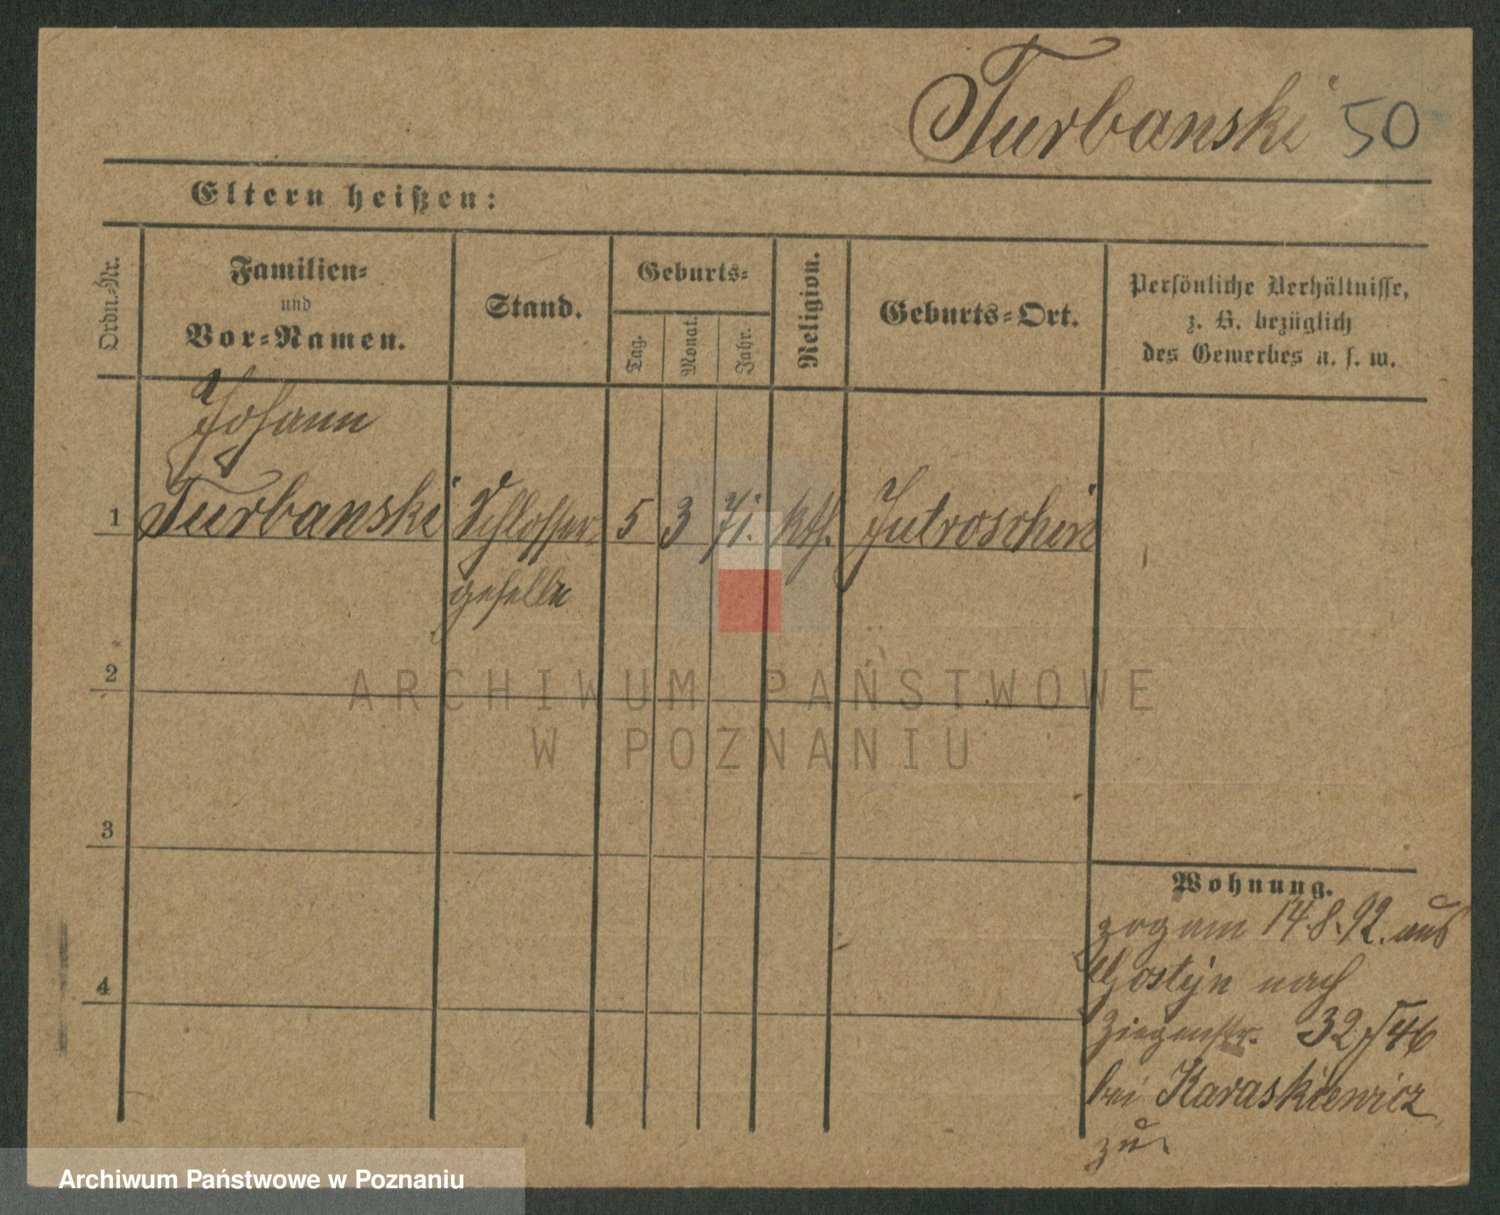 Turbanski 50
Eltern heißen:
Ordn.-Nr.
Familien-
und
Vor-Namen.
Stand.
Geburts-
Tag.
Monat.
Jahr.
Religion.
Geburts-Ort.
Persönliche Verhältnisse,
z. B. bezüglich
des Gewerbes u. s. w.
Johann
1 Turbanski Schlosser 5 3 71. kth. Jutroschin
geselle
2
3
4
ARCHIWUM PAŃSTWOWE
W POZNANIU
Wohnung.
zog am 14.8.92. aus
Gostyn nach
Ziegenstr. 32
bei Karaskiewicz
zu.
Archiwum Państwowe w Poznaniu